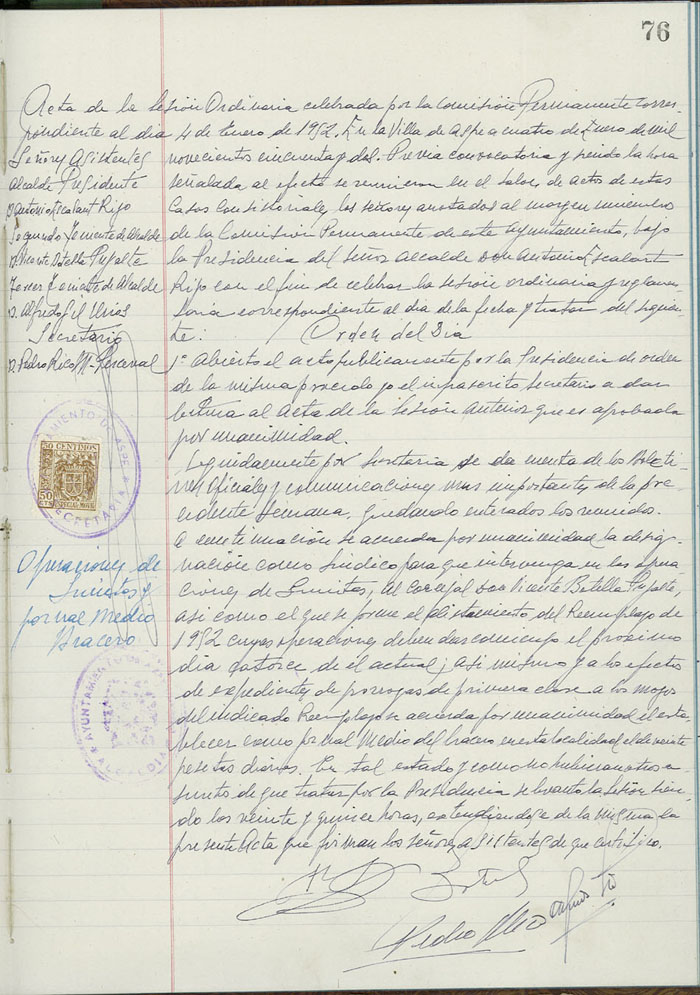 76
Acta de la Sesión Ordinaria celebrada por la Comisión Permanente corres-
pondiente al dia 4 de Enero de 1952. En la Villa de Aspe a cuatro de Enero de mil
novecientos cincuenta y dos. Previa convocatoria y siendo la hora
señalada al efecto se reunieron en el Salon de actos de estas
Casas Consistoriales, los señores anotados al margen miembros
de la Comisión Permanente de este Ayuntamiento, bajo
la Presidencia del Señor Alcalde Don Antonio Escalant
Rijo con el fin de celebrar la sesión ordinaria y reglamen-
taria correspondiente al dia de la fecha y tratar del siguien-
te: Orden del Dia
Señores Asistentes
Alcalde Presidente
D. Antonio Escalant Rijo
Segundo Teniente de Alcalde
D. Vicente Botella Pujalte
Tercer Teniente de Alcalde
D. Alfredo Gil
Secretario
D. Pedro Rico M. Perceval
1º Abierto el acto publicamente por la Presidencia de orden
de la misma procedo yo el infrascrito Secretario a dar
lectura al Acta de la Sesión Anterior que es aprobada
por unanimidad.
Seguidamente por Secretaria se da cuenta de los Boleti-
nes Oficiales y comunicaciones mas importantes de la pre-
cedente semana, quedando enterados los reunidos.
A continuación se acuerda por unanimidad la desig-
nación como Sindico para que intervenga en las opera-
ciones de Quintas, al Concejal Don Vicente Botella Pujalte,
asi como el que se forme el alistamiento del Reemplazo de
1952 cuyas operaciones deben dar comienzo el proximo
dia catorce de el actual; asi mismo y a los efectos
de expedientes de prorrogas de primera clase a los mozos
del indicado Reemplazo se acuerda por unanimidad el esta-
blecer como jornal medio del bracero en esta localidad el de veinte
pesetas diarias. En tal estado y como no hubieran otros a-
suntos de que tratar por la Presidencia se levanto la sesión sien-
do las veinte y quince horas, extendiendose de la misma la
presente Acta que firman los señores asistentes de que certifico.
AYUNTAMIENTO DE ASPE
SECRETARIA
50 CENTIMOS
50 CTS ESPECIAL MOVIL
Operaciones de
Quintas y
jornal Medio
Bracero
AYUNTAMIENTO DE ASPE
ALCALDIA
Botella
Pedro Rico